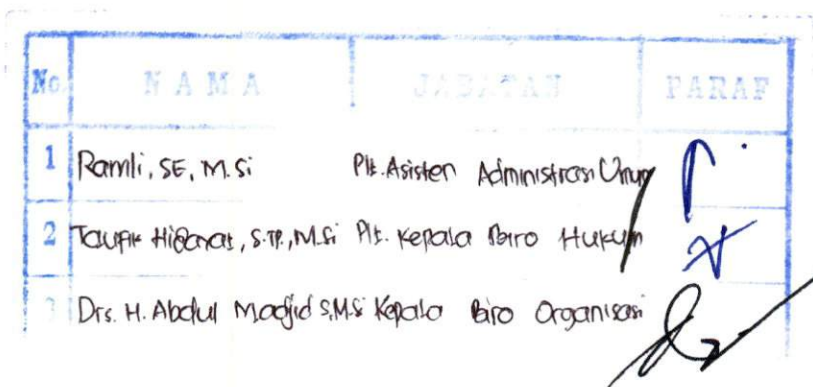 No. NAMA JABATAN PARAF
1 Ramli, SE, M.Si Plt. Asisten Administrasi Umum
2 Taufik Hidayat, S.TP., M.Si Plt. Kepala Biro Hukum
3 Drs. H. Abdul Madjid S,M.Si Kepala Biro Organisasi